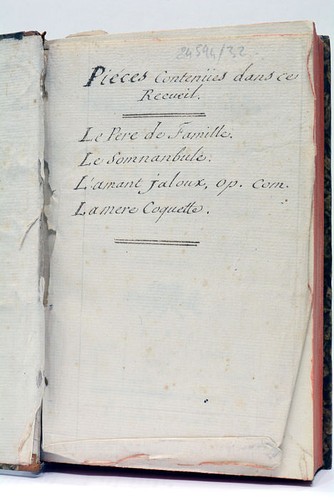 24594/32
Piéces Contenües dans ce
Recueil.
Le Pere de Famille.
Le Somnanbule.
L'amant jaloux, op. com.
La mere Coquette.